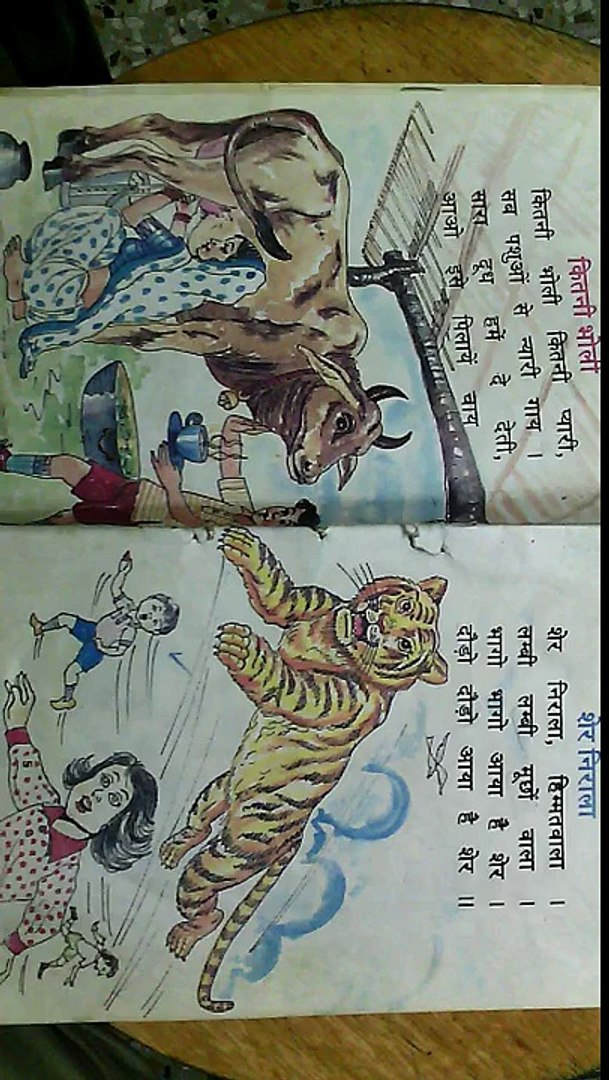 कितनी भोली
कितनी भोली कितनी प्यारी,
सब पशुओं से न्यारी गाय ।
सारा दूध हमें दे देती,
आओ इसे पिलायें चाय
शेर निराला
शेर निराला, हिम्मतवाला ।
लम्बी लम्बी मूछों वाला ।
भागो भागो आया है शेर ।
दौड़ो दौड़ो आया है शेर ॥